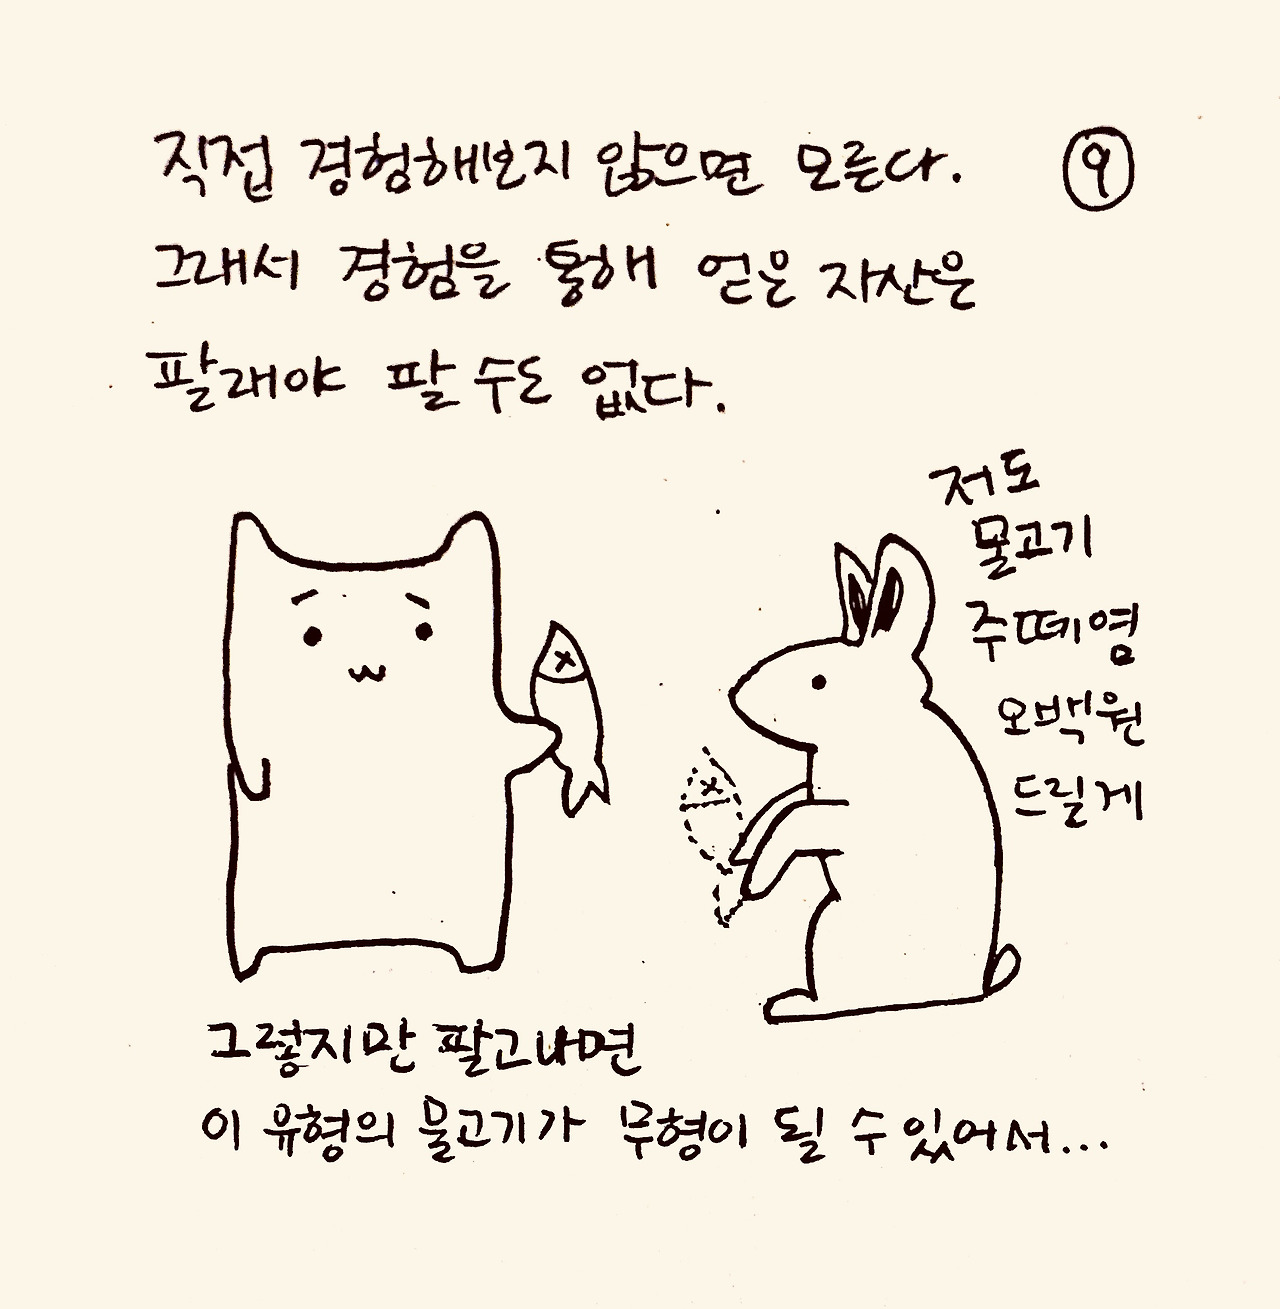 직접 경험해보지 않으면 모른다.
⑨
그래서 경험을 통해 얻은 자산은
팔래야 팔 수도 없다.
저도
물고기
주떼염
오백원
드릴게
그렇지만 팔고나면
이 유형의 물고기가 무형이 될 수 있어서...